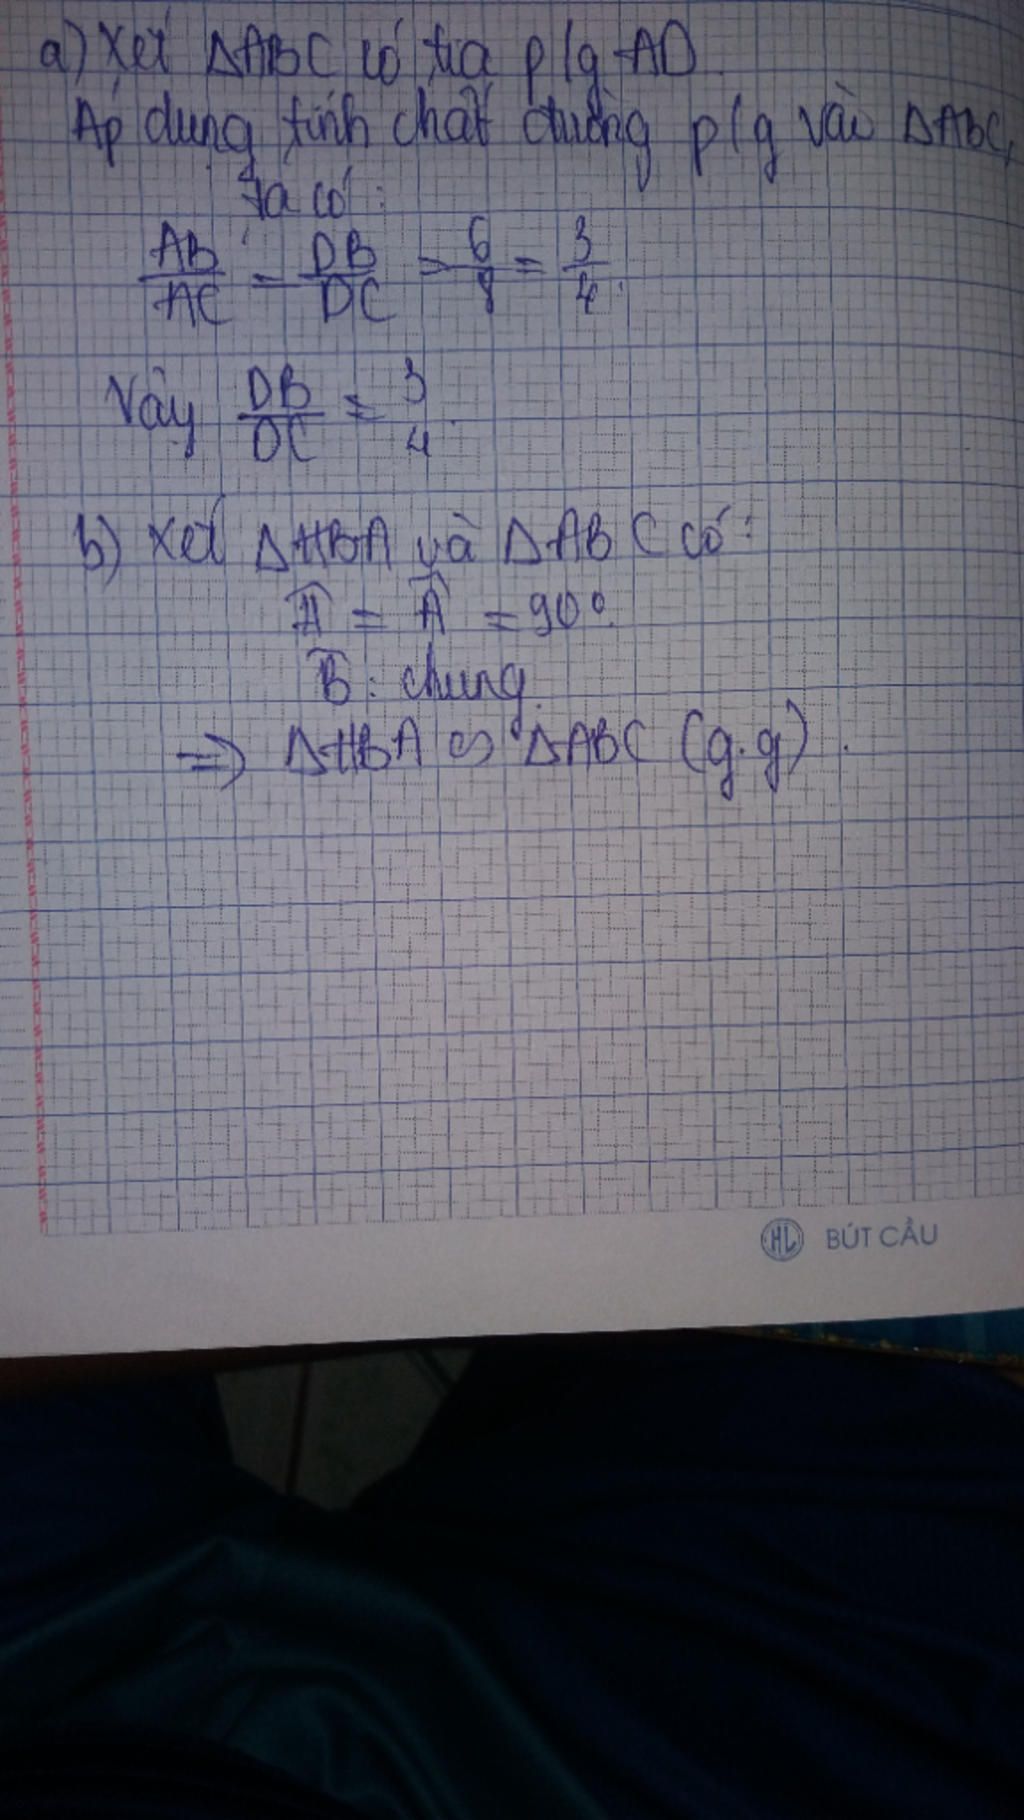 a) Xét ΔABC có tia p/g AD.
Áp dụng tính chất đường p/g vào ΔABC,
ta có:
AB/AC = DB/DC = 6/8 = 3/4.
Vậy DB/DC = 3/4.
b) Xét ΔHBA và ΔABC có:
Ĥ = Â = 90°.
B̂: chung.
=> ΔHBA ∽ ΔABC (g.g).
HL BÚT CẦU